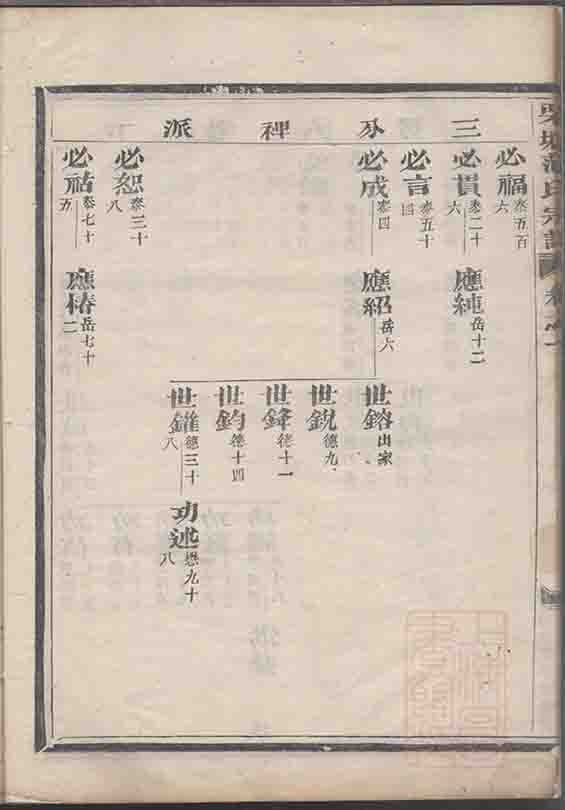 氏宗譜
三分裡派
必福 泰五百六
必貫 泰二十六 應純 岳十二
必言 泰五十四
必成 泰四 應紹 岳六
世鎔 出家
世銳 德九
世鋒 德十一
世鈞 德十四
世鑵 德三十八 功述 懋九十八
必恕 泰三十八
必祜 泰七十五 應椿 岳七十二